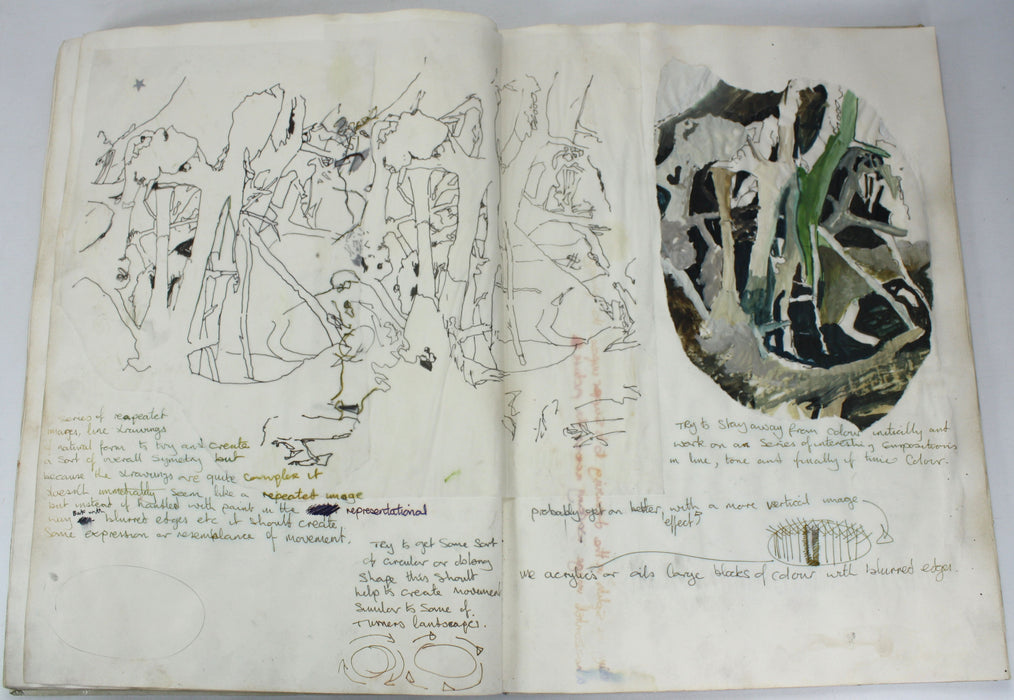 series of repeatet
images, line drawings
natural form to try and create
a Sort of overall Symetry but
because the drawings are quite complex it
doesn't immediatly Seem like a repeated image
but instead if handled with paint in the representational
way But with blurred edges etc it should create
Some expression or resemblance of movement.
Try to get Some Sort
of circular or oblong
Shape this should
help to create movement
Similar to Some of
Turners landscapes.
Try to Stay away from Colour initially and
work on a Series of interesting Compositions
in line, tone and finally if time Colour.
probably get on better with a more vertical image
effect?
use acrylics or oils large blocks of colour with blurred edges.